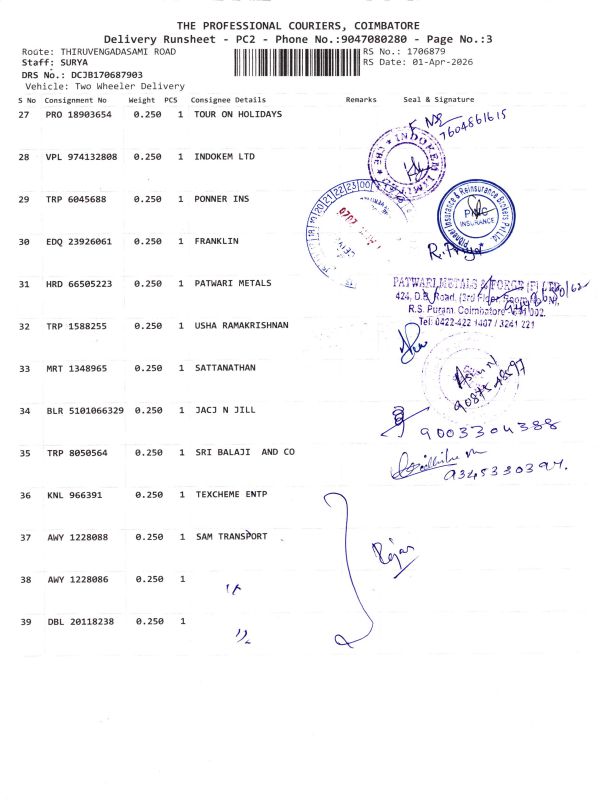 THE PROFESSIONAL COURIERS, COIMBATORE
Delivery Runsheet - PC2 - Phone No.:9047080280 - Page No.:3
Route: THIRUVENGADASAMI ROAD RS No.: 1706879
Staff: SURYA RS Date: 01-Apr-2026
DRS No.: DCJB170687903
Vehicle: Two Wheeler Delivery
S No Consignment No Weight PCS Consignee Details Remarks Seal & Signature
27 PRO 18903654 0.250 1 TOUR ON HOLIDAYS
7604861615
28 VPL 974132808 0.250 1 INDOKEM LTD
INDOKEM LIMITED
29 TRP 6045688 0.250 1 PONNER INS
Pioneer Insurance & Reinsurance Brokers Pvt Ltd
INSURANCE
30 EDQ 23926061 0.250 1 FRANKLIN
R. Priya
31 HRD 66505223 0.250 1 PATWARI METALS
PATWARI METALS & FORGE (P) LTD
424, D.B. Road, (3rd Floor, Room No.
R.S. Puram, Coimbatore
Tel: 0422-422 1407 / 3241 221
32 TRP 1588255 0.250 1 USHA RAMAKRISHNAN
33 MRT 1348965 0.250 1 SATTANATHAN
34 BLR 5101066329 0.250 1 JACJ N JILL
9003304388
35 TRP 8050564 0.250 1 SRI BALAJI AND CO
9345330397.
36 KNL 966391 0.250 1 TEXCHEME ENTP
37 AWY 1228088 0.250 1 SAM TRANSPORT
38 AWY 1228086 0.250 1
39 DBL 20118238 0.250 1